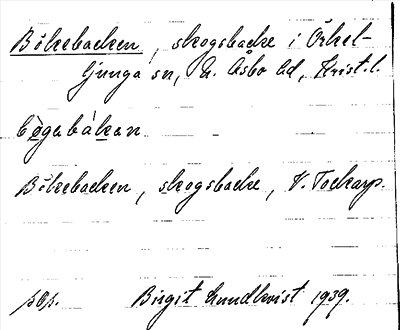 Bökebacken, skogsbacke i Örkel-
ljunga sn, N. Åsbo hd, Krist. l.
bøgabákan
Bökebacken, skogsbacke, V. Tockarp.
pop. Birgit Lundkvist 1939.